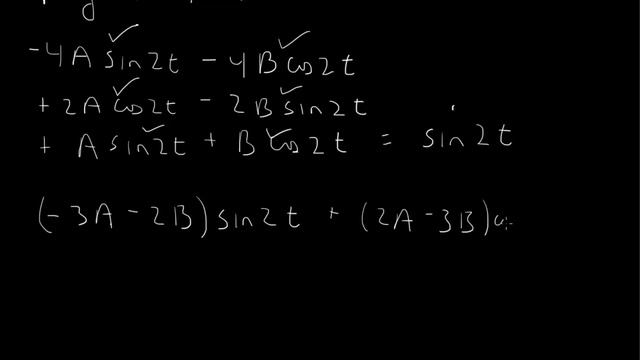 -4A sin2t - 4B cos2t
+ 2A cos2t - 2B sin2t
+ A sin2t + B cos2t = sin2t
(-3A - 2B) sin2t + (2A - 3B)